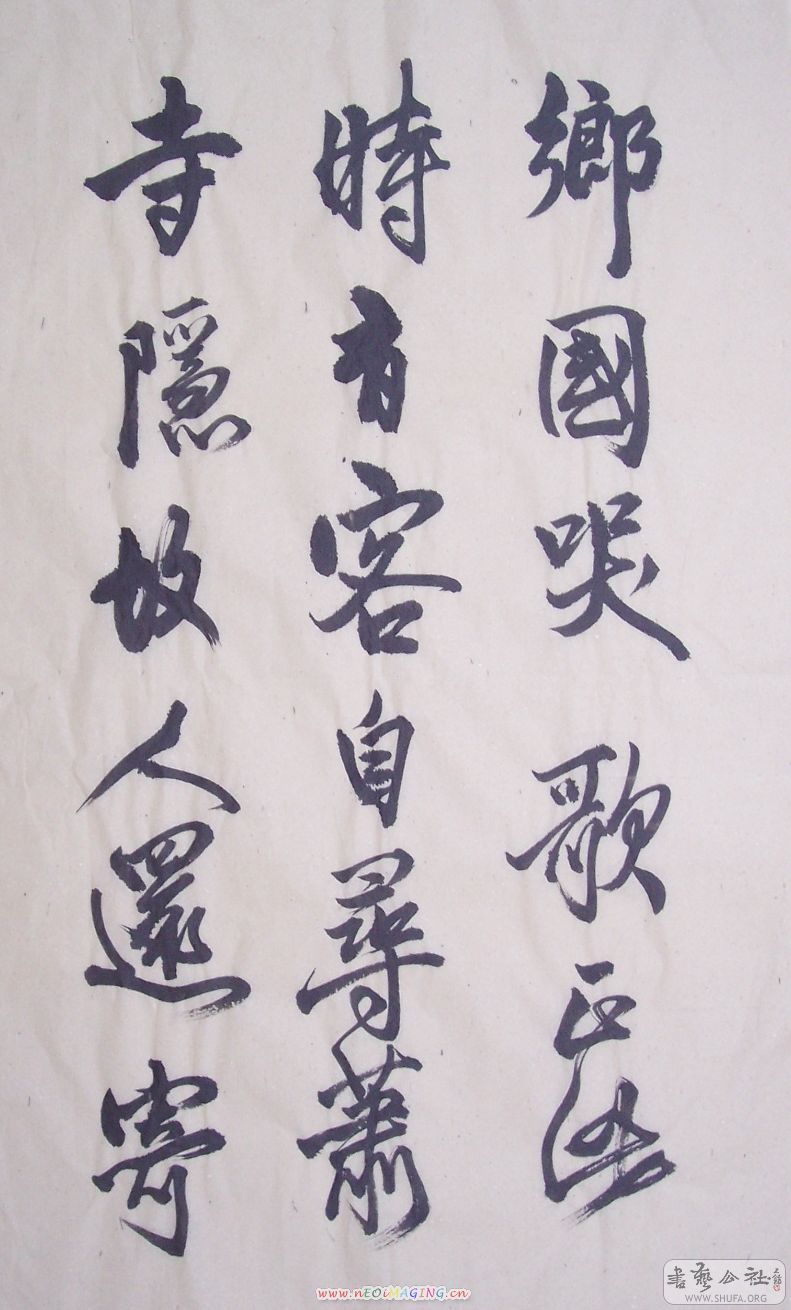 鄉國哭歌正
時有客自尋蕭
寺隱故人還寄
www.nEOiMAGING.cn
書藝公社
WWW.SHUFA.ORG